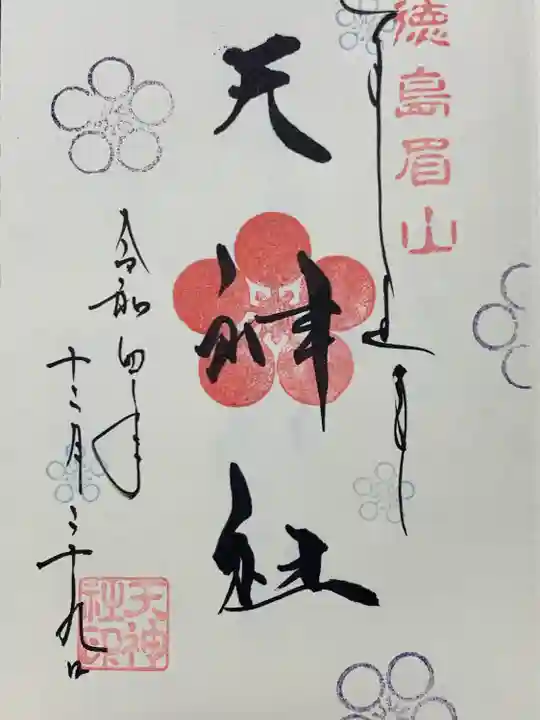 徳島眉山
天神社
令和四年
十二月二十九日
天神
社印